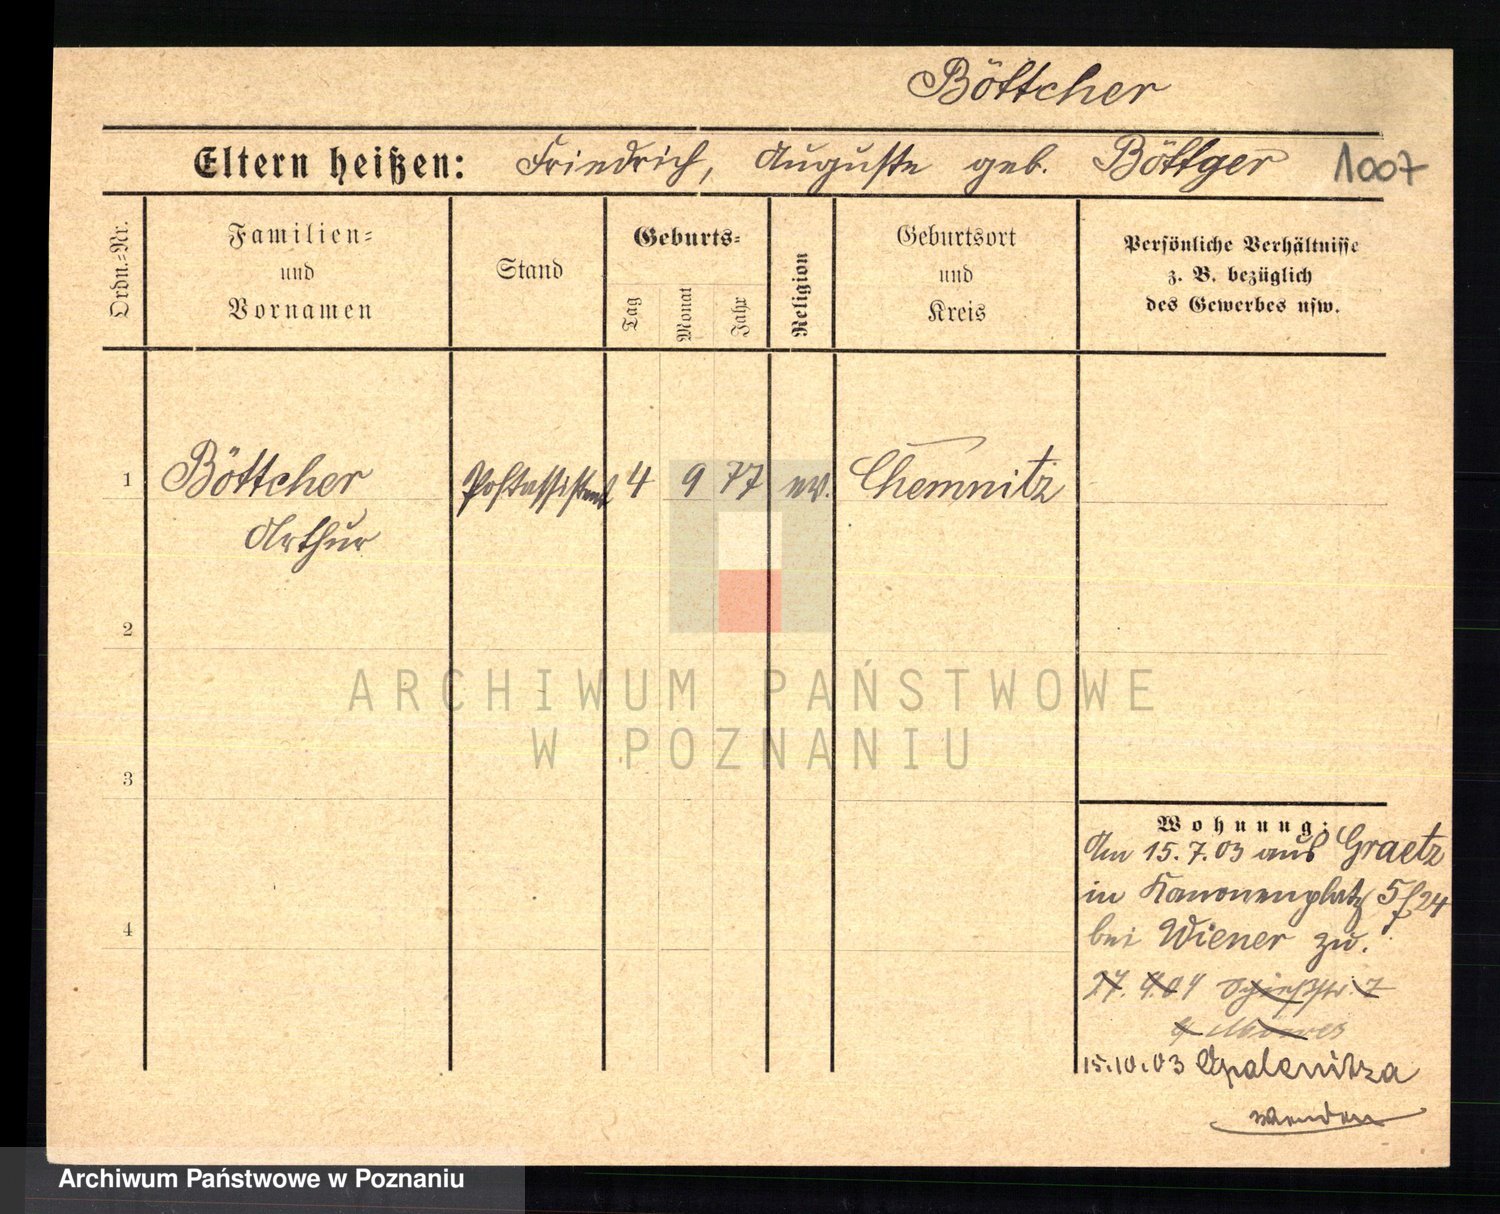 Böttcher
Eltern heißen: Friedrich, Auguste geb. Böttger 1007
Ordn.-Nr.
Familien-
und
Vornamen
Stand
Geburts-
Tag
Monat
Jahr
Religion
Geburtsort
und
Kreis
Persönliche Verhältnisse
z. B. bezüglich
des Gewerbes usw.
1 Böttcher Postassistent 4 9 77 ev. Chemnitz
Arthur
2
3
4
ARCHIWUM PAŃSTWOWE
W POZNANIU
Wohnung:
Am 15.7.03 aus Graetz
in Kanonenplatz 5 f/24
bei Wiener zu.
27. 4.04 Schießstr. 7
15.10.03 Opalenitza
wenden
Archiwum Państwowe w Poznaniu